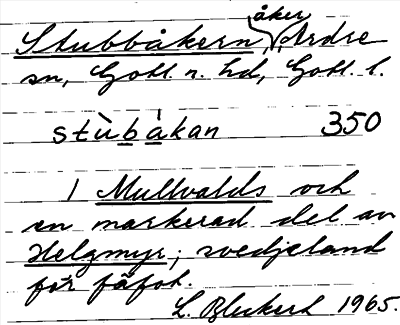 Stubbåkern, åker, Ardre
sn, Gotl. n. hd, Gotl. l.
stùbàkan 350
I Mullvalds och
en markerad del av
Helgmyr; svedjeland
för fäfot.
L. Bleckert 1965.